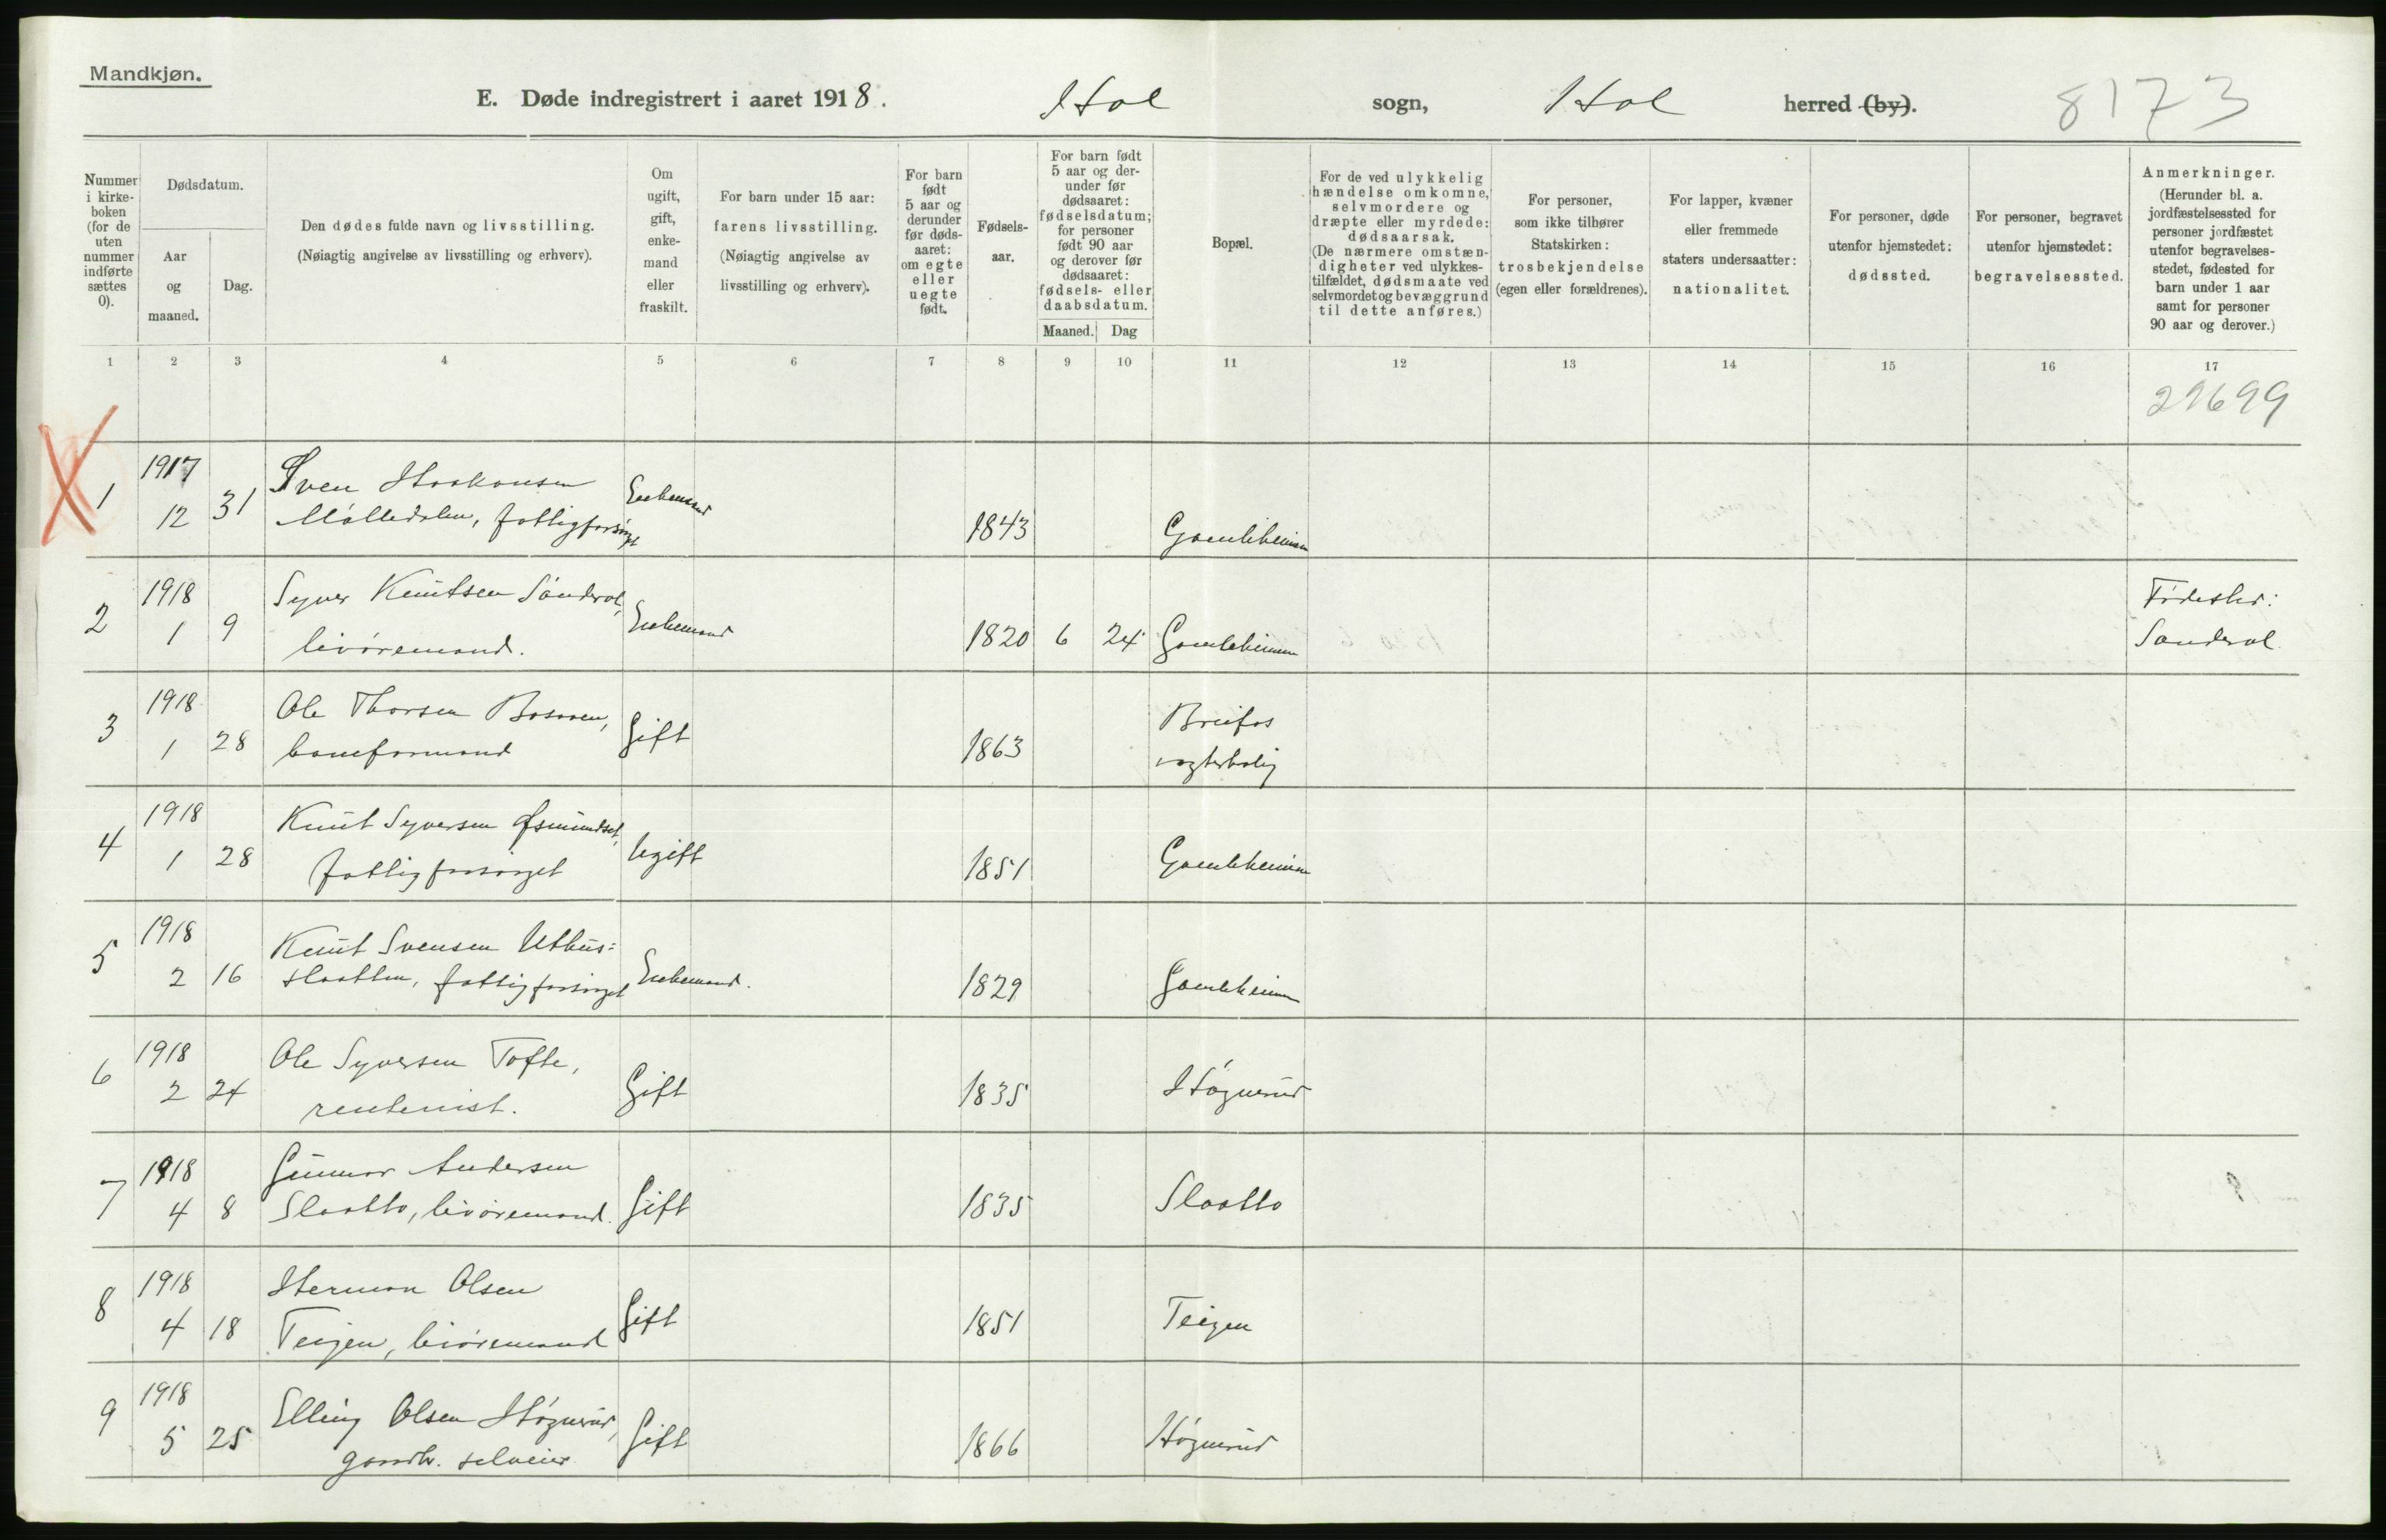 Mandkjøn.
E. Døde indregistrert i aaret 1918. Hol sogn, Hol herred (by).
8173
Nummer i kirke-boken (for de uten nummer indførte sættes 0).
Dødsdatum.
Aar og maaned.
Dag.
Den dødes fulde navn og livsstilling.
(Nøiagtig angivelse av livsstilling og erhverv).
Om ugift, gift, enke-mand eller fraskilt.
For barn under 15 aar:
farens livsstilling.
(Nøiagtig angivelse av livsstilling og erhverv).
For barn født 5 aar og derunder før døds-aaret: om egte eller uegte født.
Fødsels-aar.
For barn født 5 aar og der-under før dødsaaret: fødselsdatum; for personer født 90 aar og derover før dødsaaret: fødsels- eller daabsdatum.
Maaned.
Dag
Bopæl.
For de ved ulykkelig hændelse omkomne, selvmordere og dræpte eller myrdede: dødsaarsak. (De nærmere omstæn-digheter ved ulykkes-tilfældet, dødsmaate ved selvmordet og bevæggrund til dette anføres.)
For personer, som ikke tilhører Statskirken: trosbekjendelse (egen eller forældrenes).
For lapper, kvæner eller fremmede staters undersaatter: nationalitet.
For personer, døde utenfor hjemstedet: dødssted.
For personer, begravet utenfor hjemstedet: begravelsessted.
Anmerkninger.
(Herunder bl. a. jordfæstelsessted for personer jordfæstet utenfor begravelses-stedet, fødested for barn under 1 aar samt for personer 90 aar og derover.)
1 2 3 4 5 6 7 8 9 10 11 12 13 14 15 16 17
29699
1 1917 Sven Haakonsen Enkemand
12 31 Mølledalen, fattigforsørget 1843 Gamleheimen
2 1918 Syver Knutsen Sønderol, Enkemand Fødested:
1 9 livøremand. 1820 6 24 Gamleheimen Sønderol
3 1918 Ole Thorsen Gift Breifos
1 28 baneformand 1863 vogterbolig
4 1918 Knut Syversen Ugift
1 28 fattigforsørget 1851 Gamleheimen
5 1918 Knut Svensen Uthus-
2 16 slaatten, fattigforsørget Enkemand. 1829 Gamleheimen
6 1918 Ole Syversen Tofte,
2 24 rentenist. Gift 1835 Høgnerud
7 1918 Gunnar Andersen
4 8 Slaatto, livøremand. Gift 1835 Slaatto
8 1918 Herman Olsen
4 18 Teigen, livøremand Gift 1851 Teigen
9 1918 Elling Olsen Høgnerud,
5 25 gaardbr. selveier Gift 1866 Høgnerud